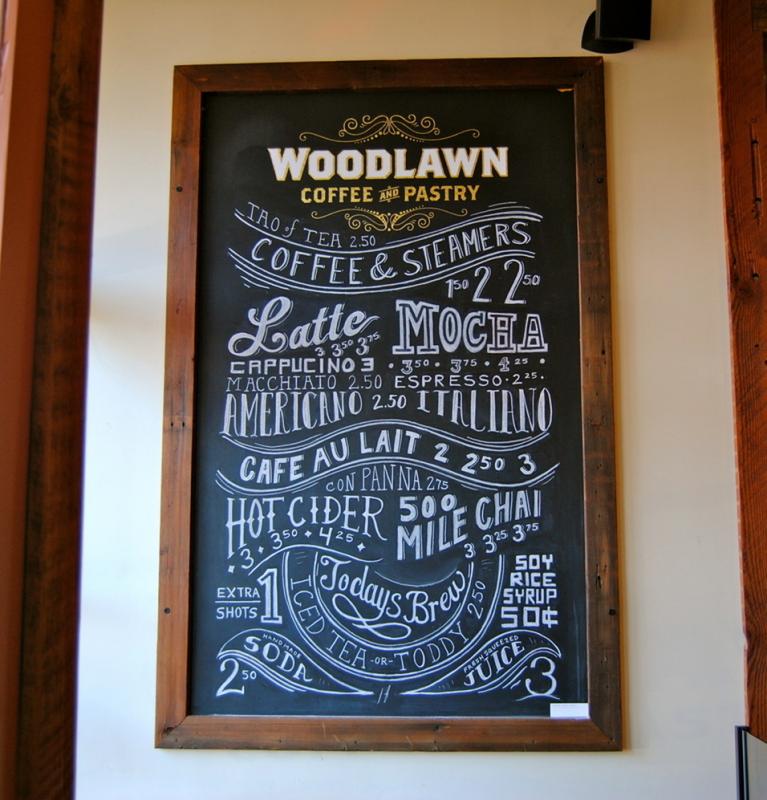 WOODLAWN
COFFEE AND PASTRY
TAO of TEA 2.50
COFFEE & STEAMERS
1 50 2 2 50
Latte
3 3 50 3 75
MOCHA
CAPPUCINO 3 · 3 50 · 3 75 · 4 25 ·
MACCHIATO 2.50 ESPRESSO · 2 25 ·
AMERICANO 2.50 ITALIANO
CAFE AU LAIT 2 2 50 3
CON PANNA 2 75
HOT CIDER
· 3 · 3 50 · 4 25 ·
500
MILE CHAI
3 3 25 3 75
EXTRA
SHOTS 1
Todays Brew
ICED TEA -OR- TODDY 2.50
SOY
RICE
SYRUP
50¢
HANDMADE
SODA
2 50
FRESH SQUEEZED
JUICE
3